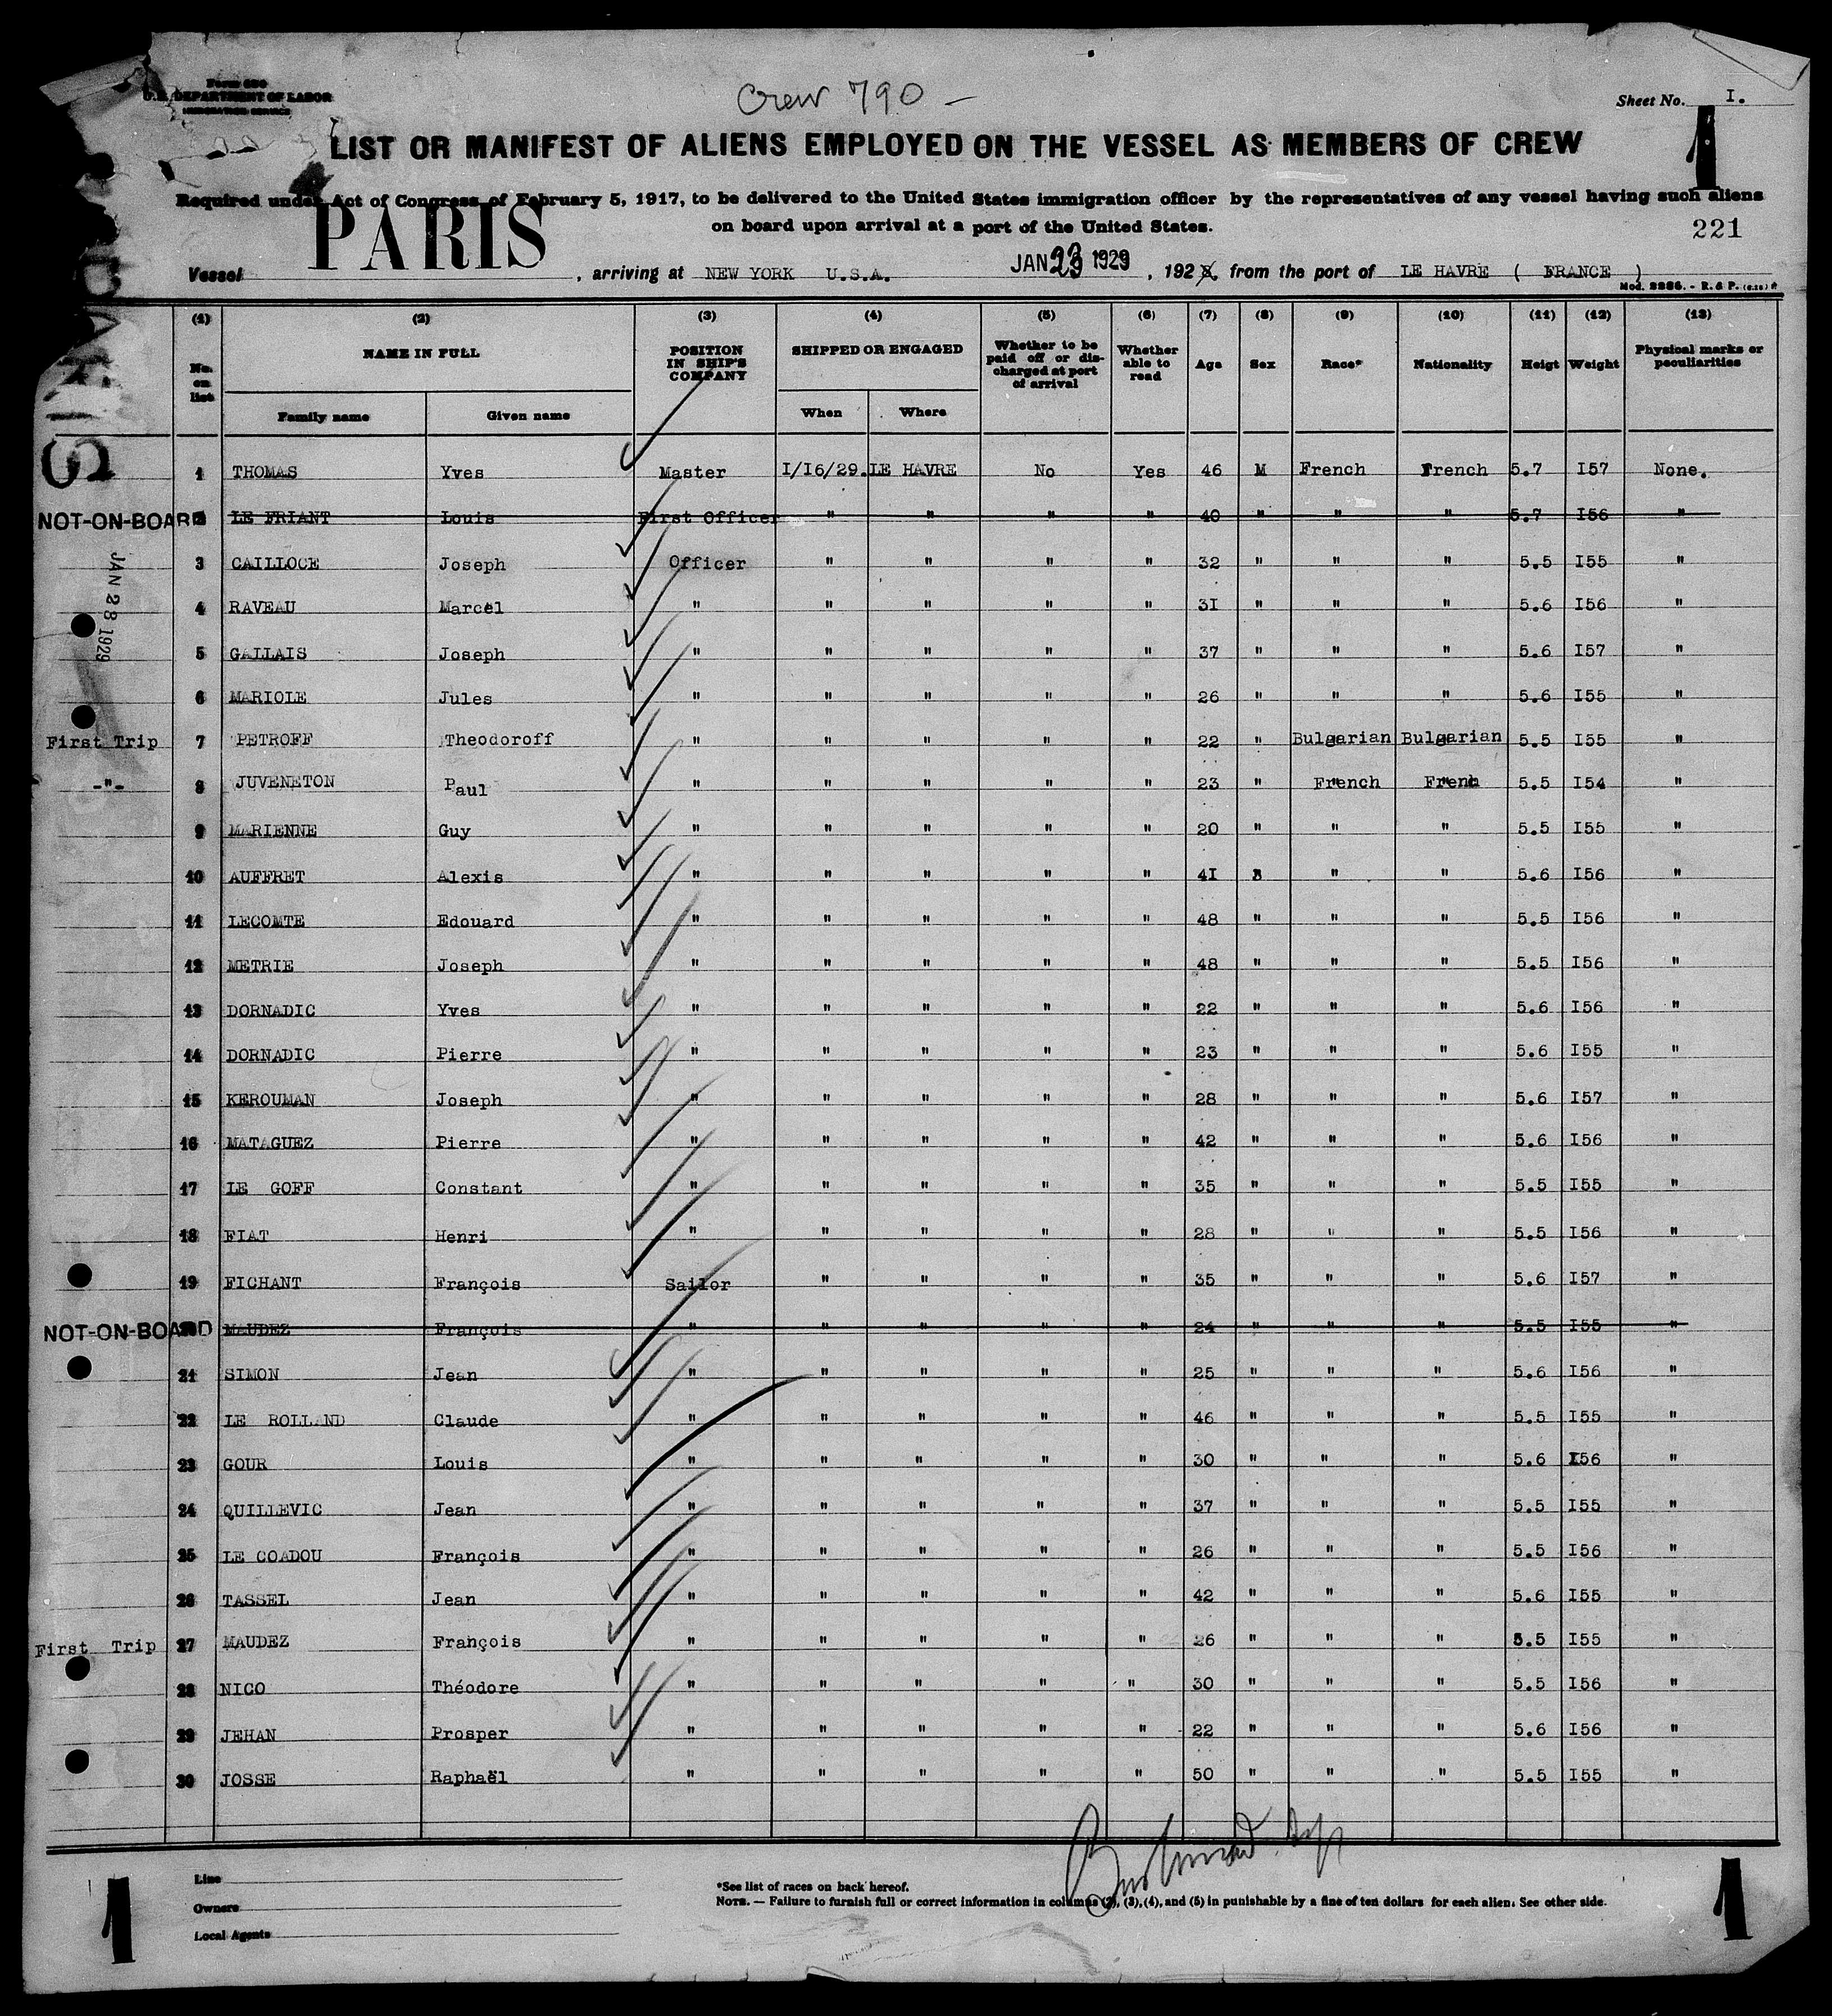 Form 680
U.S. DEPARTMENT OF LABOR
IMMIGRATION SERVICE
Crew 790 —
Sheet No. I.
1
LIST OR MANIFEST OF ALIENS EMPLOYED ON THE VESSEL AS MEMBERS OF CREW
Required under Act of Congress of February 5, 1917, to be delivered to the United States immigration officer by the representatives of any vessel having such aliens
on board upon arrival at a port of the United States.
221
Vessel PARIS, arriving at NEW YORK U.S.A. JAN 23 1929, 192 from the port of LE HAVRE ( FRANCE )
Mod. 2286. - R. & P. (6.28) *
PARIS
(1) (2) (3) (4) (5) (6) (7) (8) (9) (10) (11) (12) (13)
No. on list NAME IN FULL POSITION IN SHIP'S COMPANY SHIPPED OR ENGAGED Whether to be paid off or discharged at port of arrival Whether able to read Age Sex Race* Nationality Heigt Weight Physical marks or peculiarities
Family name Given name When Where
1 THOMAS Yves Master I/I6/29. LE HAVRE No Yes 46 M French French 5.7 I57 None.
NOT-ON-BOARD 2 LE FRIANT Louis First Officer " " " " 40 " " " 5.7 I56 "
3 CAILLOCE Joseph Officer " " " " 32 " " " 5.5 I55 "
JAN 28 1929
4 RAVEAU Marcel " " " " " 3I " " " 5.6 I56 "
5 GALLAIS Joseph " " " " " 37 " " " 5.6 I57 "
6 MARIOLE Jules " " " " " 26 " " " 5.6 I55 "
First Trip 7 PETROFF Theodoroff " " " " " 22 " Bulgarian Bulgarian 5.5 I55 "
-"- 8 JUVENETON Paul " " " " " 23 " French Frenh 5.5 I54 "
9 MARIENNE Guy " " " " " 20 " " " 5.5 I55 "
10 AUFFRET Alexis " " " " " 4I " " " 5.6 I56 "
11 LECOMTE Edouard " " " " " 48 " " " 5.5 I56 "
12 METRIE Joseph " " " " " 48 " " " 5.5 I56 "
13 DORNADIC Yves " " " " " 22 " " " 5.6 I56 "
14 DORNADIC Pierre " " " " " 23 " " " 5.6 I55 "
15 KEROUMAN Joseph " " " " " 28 " " " 5.6 I57 "
16 MATAGUEZ Pierre " " " " " 42 " " " 5.6 I56 "
17 LE GOFF Constant " " " " " 35 " " " 5.5 I55 "
18 FIAT Henri " " " " " 28 " " " 5.5 I56 "
19 FICHANT François Sailor " " " " 35 " " " 5.6 I57 "
NOT-ON-BOARD 20 MAUDEZ François " " " " " 24 " " " 5.5 I55 "
21 SIMON Jean " " " " " 25 " " " 5.6 I56 "
22 LE ROLLAND Claude " " " " " 46 " " " 5.5 I55 "
23 GOUR Louis " " " " " 30 " " " 5.6 I56 "
24 QUILLEVIC Jean " " " " " 37 " " " 5.5 I55 "
25 LE COADOU François " " " " " 26 " " " 5.5 I56 "
26 TASSEL Jean " " " " " 42 " " " 5.6 I55 "
First Trip 27 MAUDEZ François " " " " " 26 " " " 5.5 I55 "
28 NICO Théodore " " " " " 30 " " " 5.5 I56 "
29 JEHAN Prosper " " " " " 22 " " " 5.6 I56 "
30 JOSSE Raphaël " " " " " 50 " " " 5.5 I55 "
Line
Owners
Local Agents
*See list of races on back hereof.
NOTE. — Failure to furnish full or correct information in columns (2), (3), (4), and (5) in punishable by a fine of ten dollars for each alien. See other side.
1
1